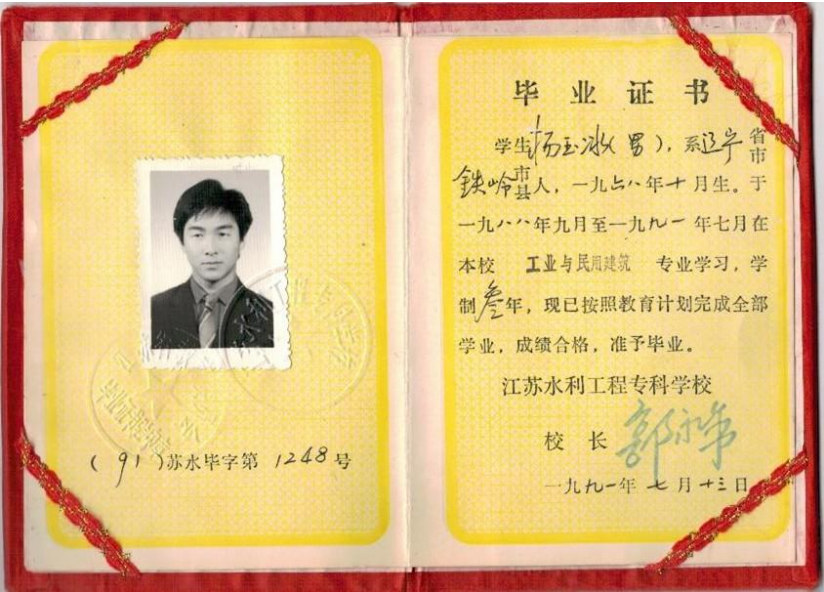 (91)苏水毕字第1248号
毕业证书
学生杨玉冰(男),系辽宁省市
鉄岭市县人,一九六八年十月生。于
一九八八年九月至一九九一年七月在
本校 工业与民用建筑 专业学习,学
制叁年,现已按照教育计划完成全部
学业,成绩合格,准予毕业。
江苏水利工程专科学校
校长
一九九一年七月十三日